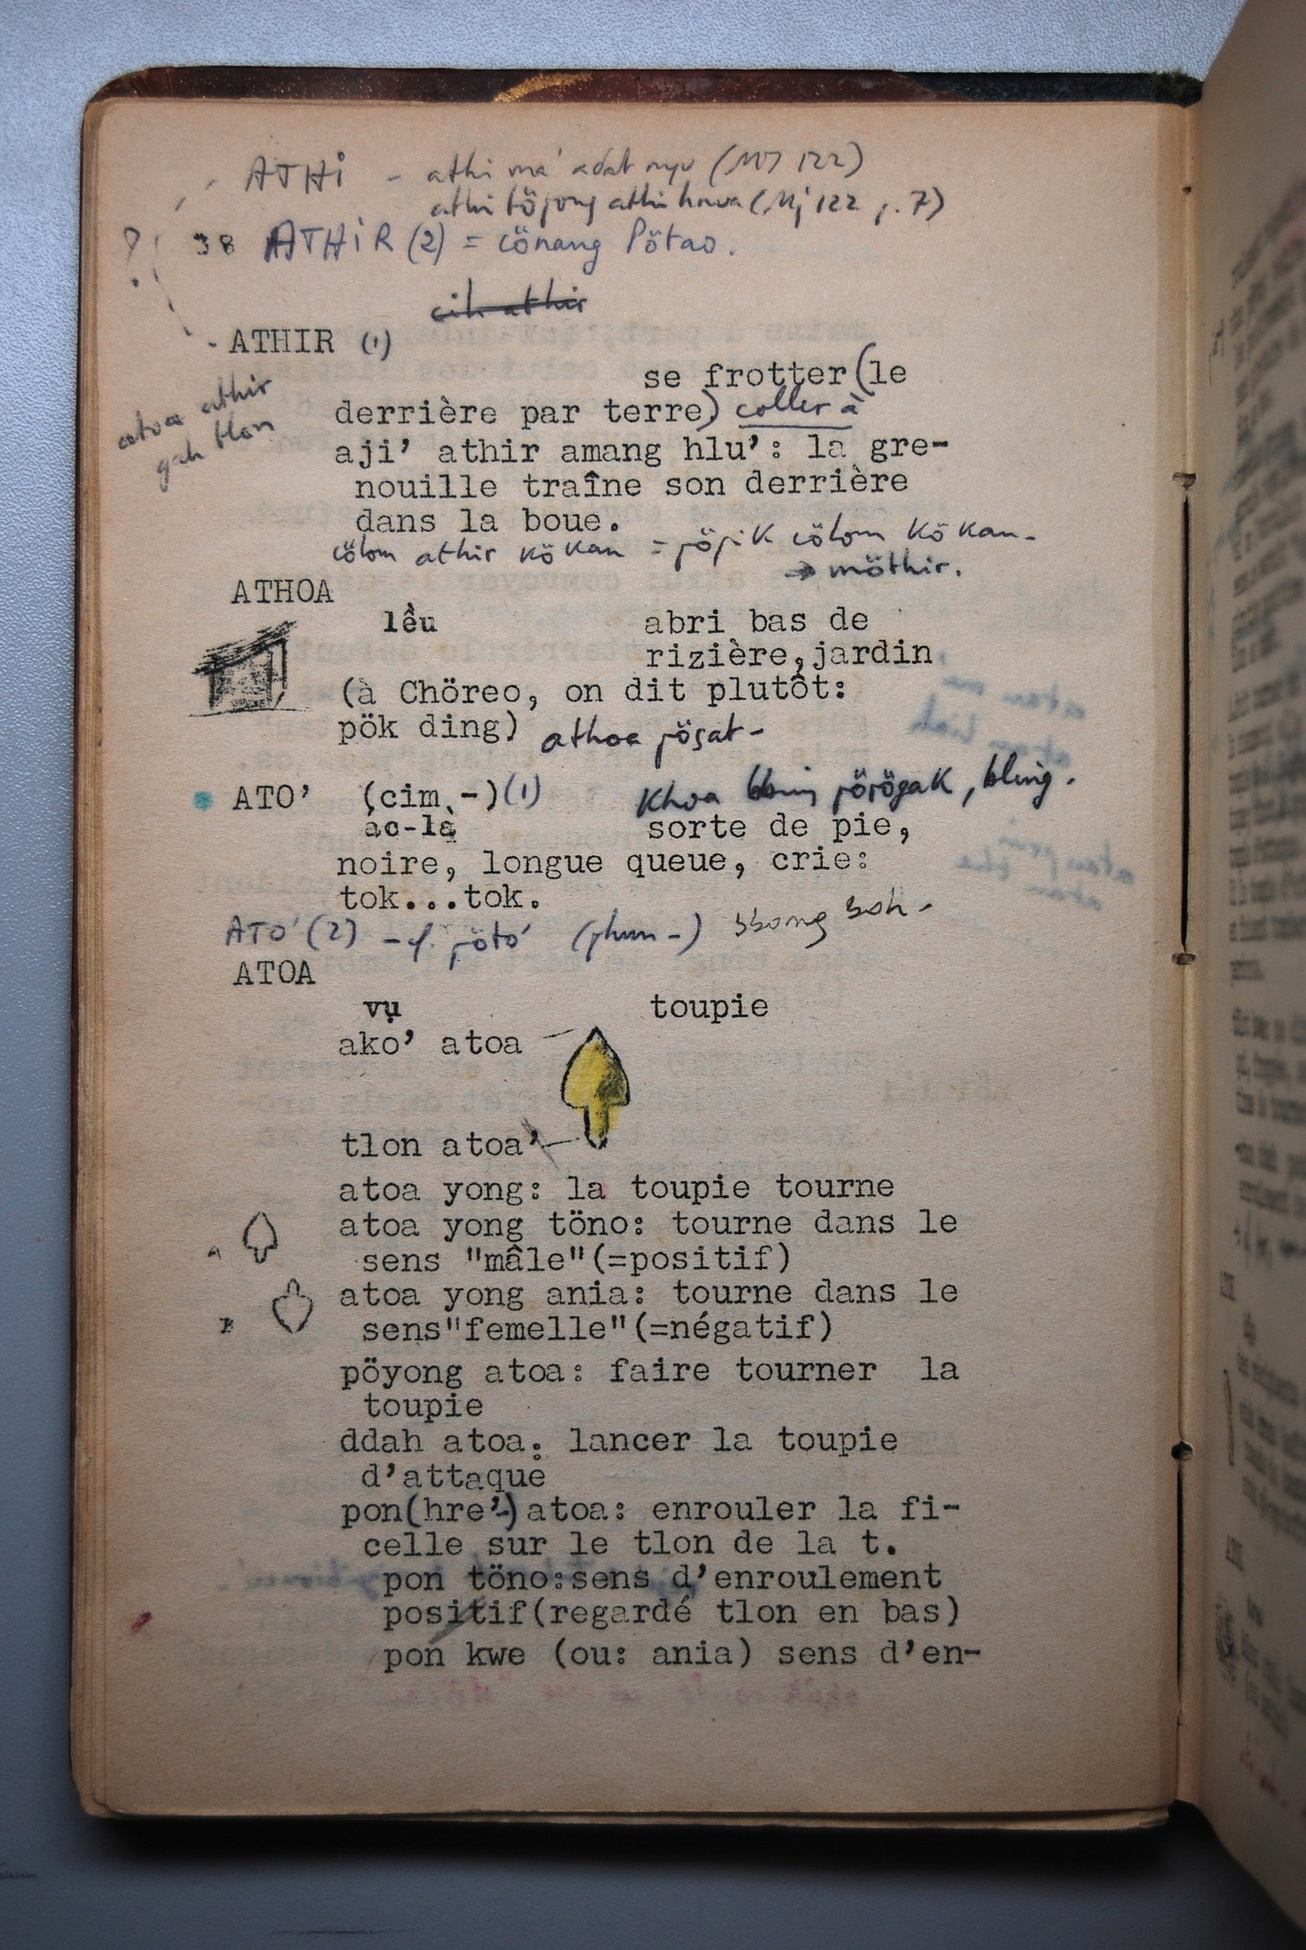 ATHI - athi ma' adat nyu (MJ 122)
athi töjong athi howa (Mj 122 p. 7)
38 ATHIR (2) = cönang Pötao.
cih athir
ATHIR (1)
se frotter (le
derrière par terre) coller à
atoa athir
gah tlon
aji' athir amang hlu': la gre-
nouille traîne son derrière
dans la boue.
cölom athir kökan = pöpik cölom kökan.
→ möthir.
ATHOA
lều abri bas de
rizière, jardin
(à Chöreo, on dit plutôt:
pök ding) athoa pösat-
ATO' (cim -) (1) khoa pörögak, bling.
ác-là sorte de pie,
noire, longue queue, crie:
tok...tok.
ATO' (2) - cf. pötö' (phun -)
ATOA
vụ toupie
ako' atoa
tlon atoa'
atoa yong: la toupie tourne
atoa yong töno: tourne dans le
A sens "mâle"(=positif)
atoa yong ania: tourne dans le
B sens"femelle"(=négatif)
pöyong atoa: faire tourner la
toupie
ddah atoa: lancer la toupie
d'attaque
pon(hre'-)atoa: enrouler la fi-
celle sur le tlon de la t.
pon töno:sens d'enroulement
positif(regardé tlon en bas)
pon kwe (ou: ania) sens d'en-